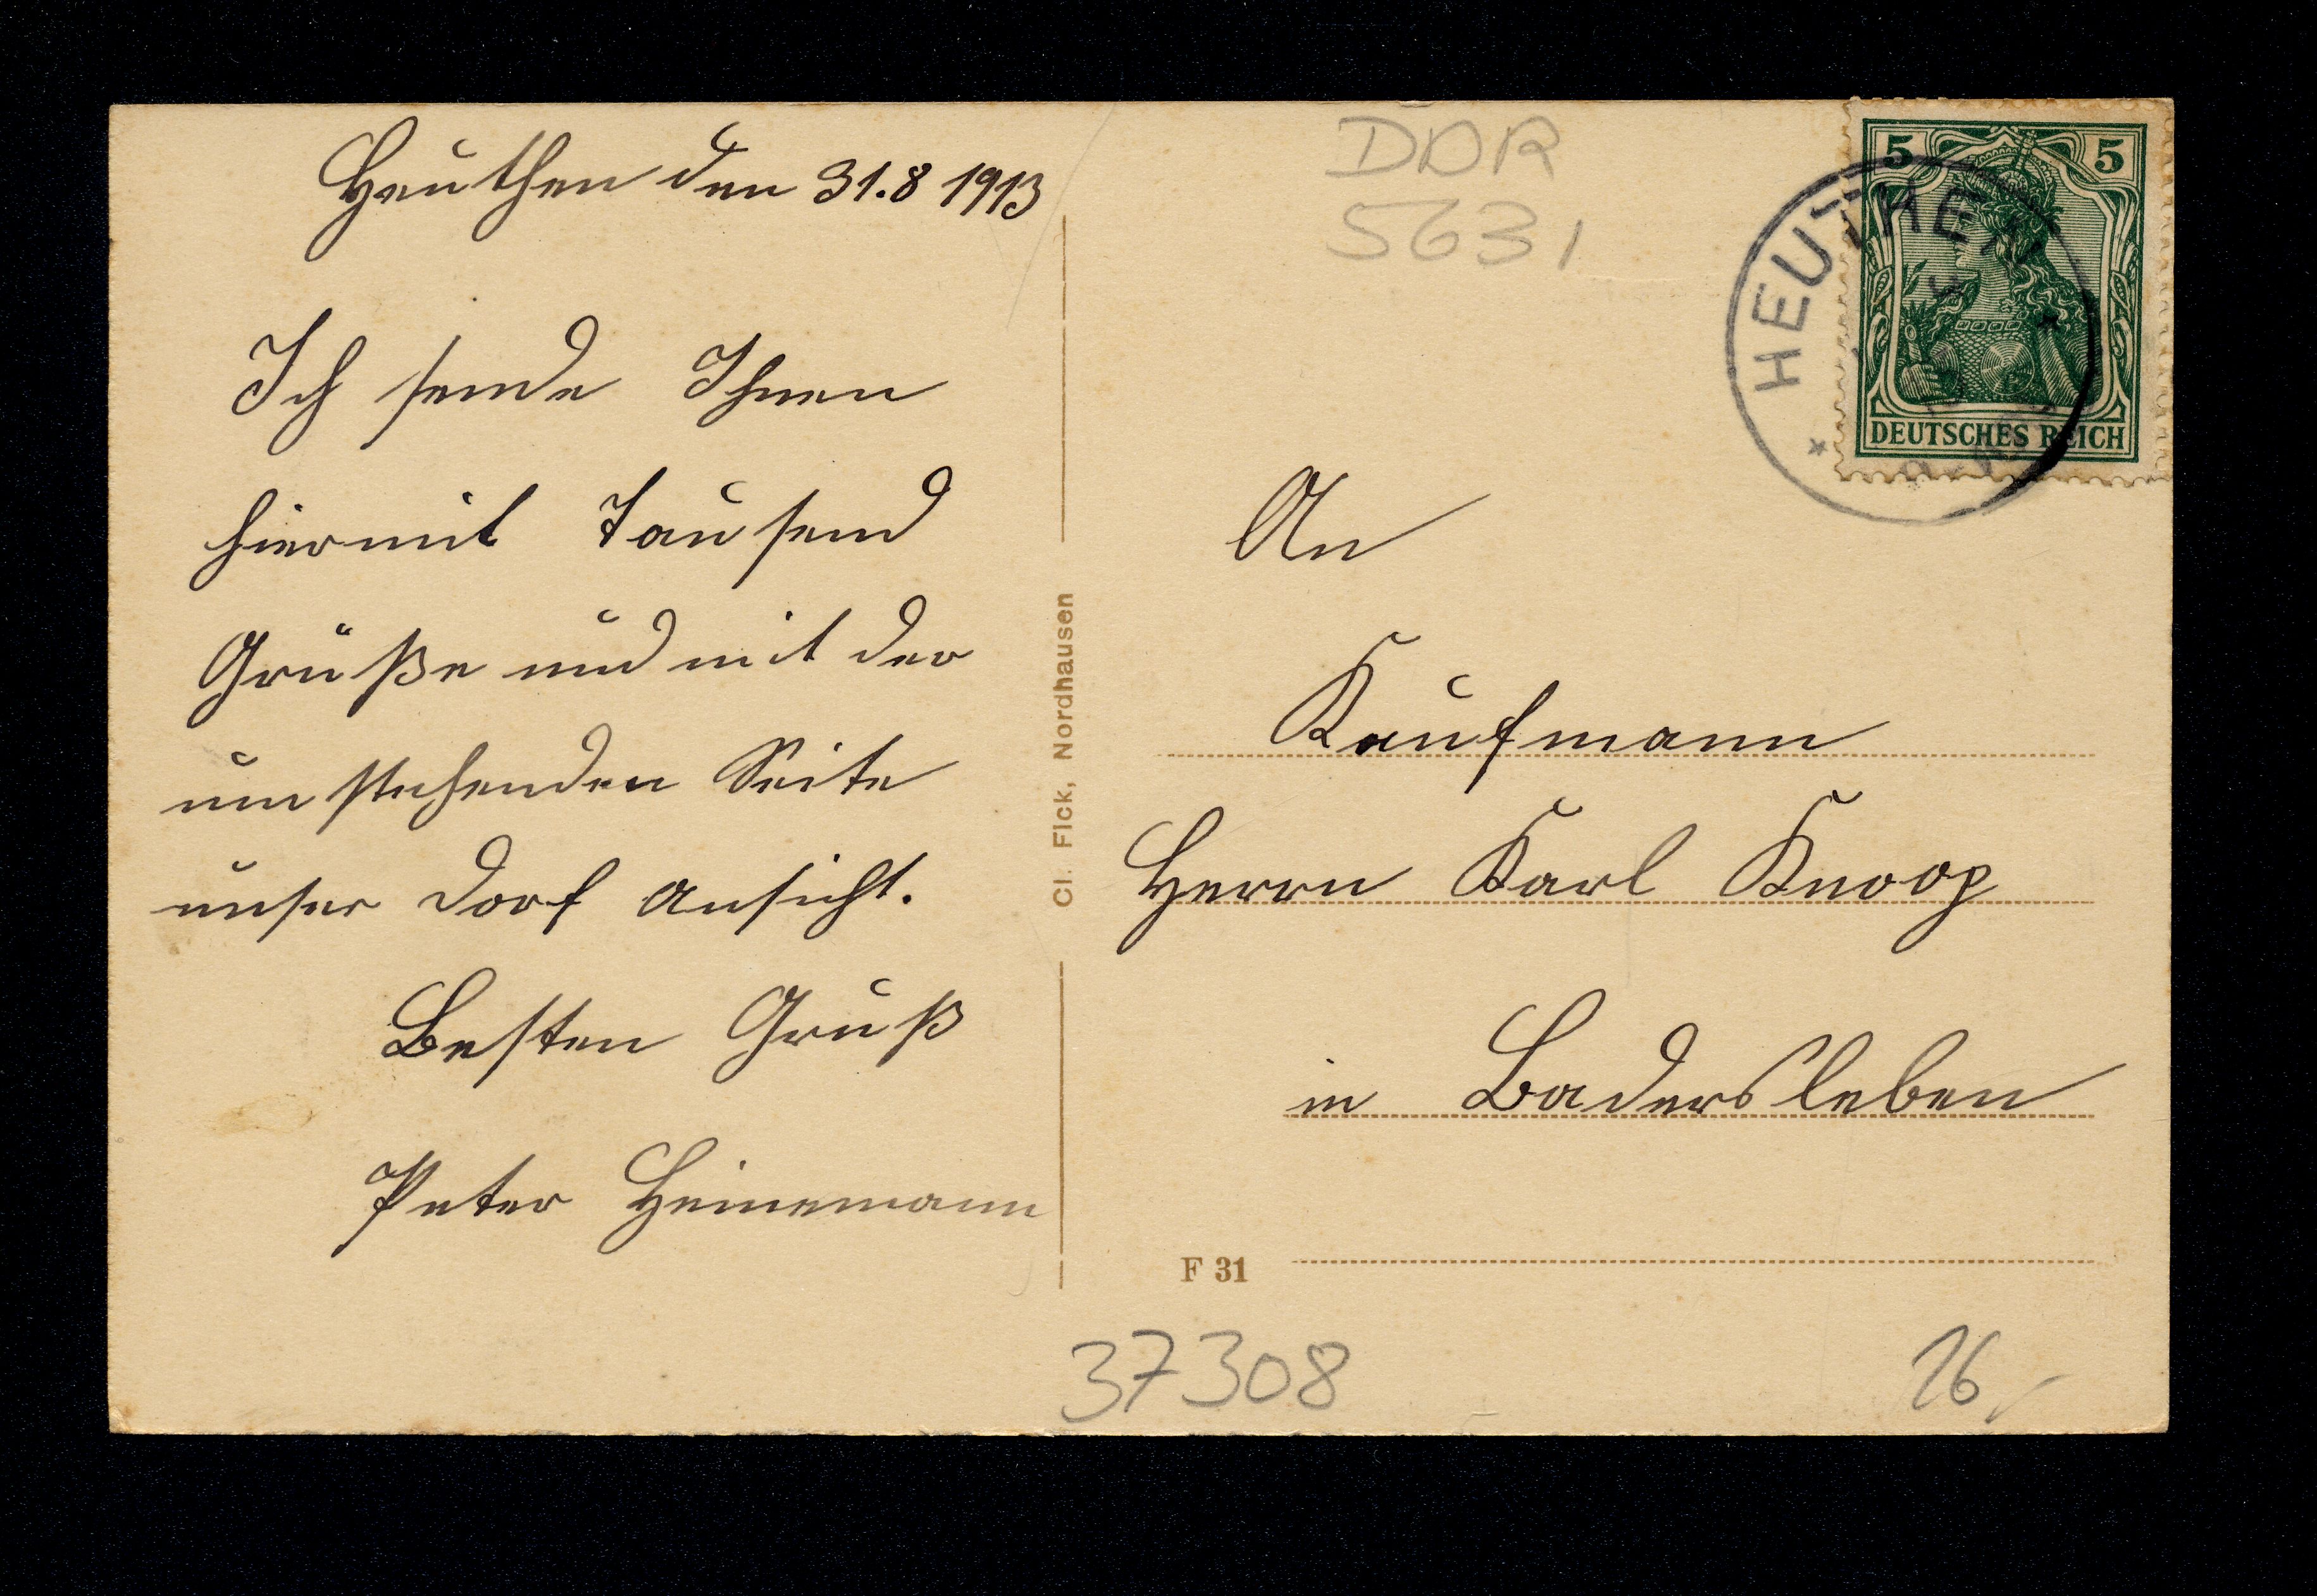 Heuthen den 31.8 1913
Ich sende Ihnen
hiermit Tausend
Grüße und mit der
umstehenden Seite
unser Dorf Ansicht.
Besten Gruß
Peter Heinemann
Cl. Fick, Nordhausen
DDR
5631
5 5
DEUTSCHES REICH
HEUTHEN
An
Kaufmann
Herrn Karl Knoop
in Badersleben
F 31
37308
16,-